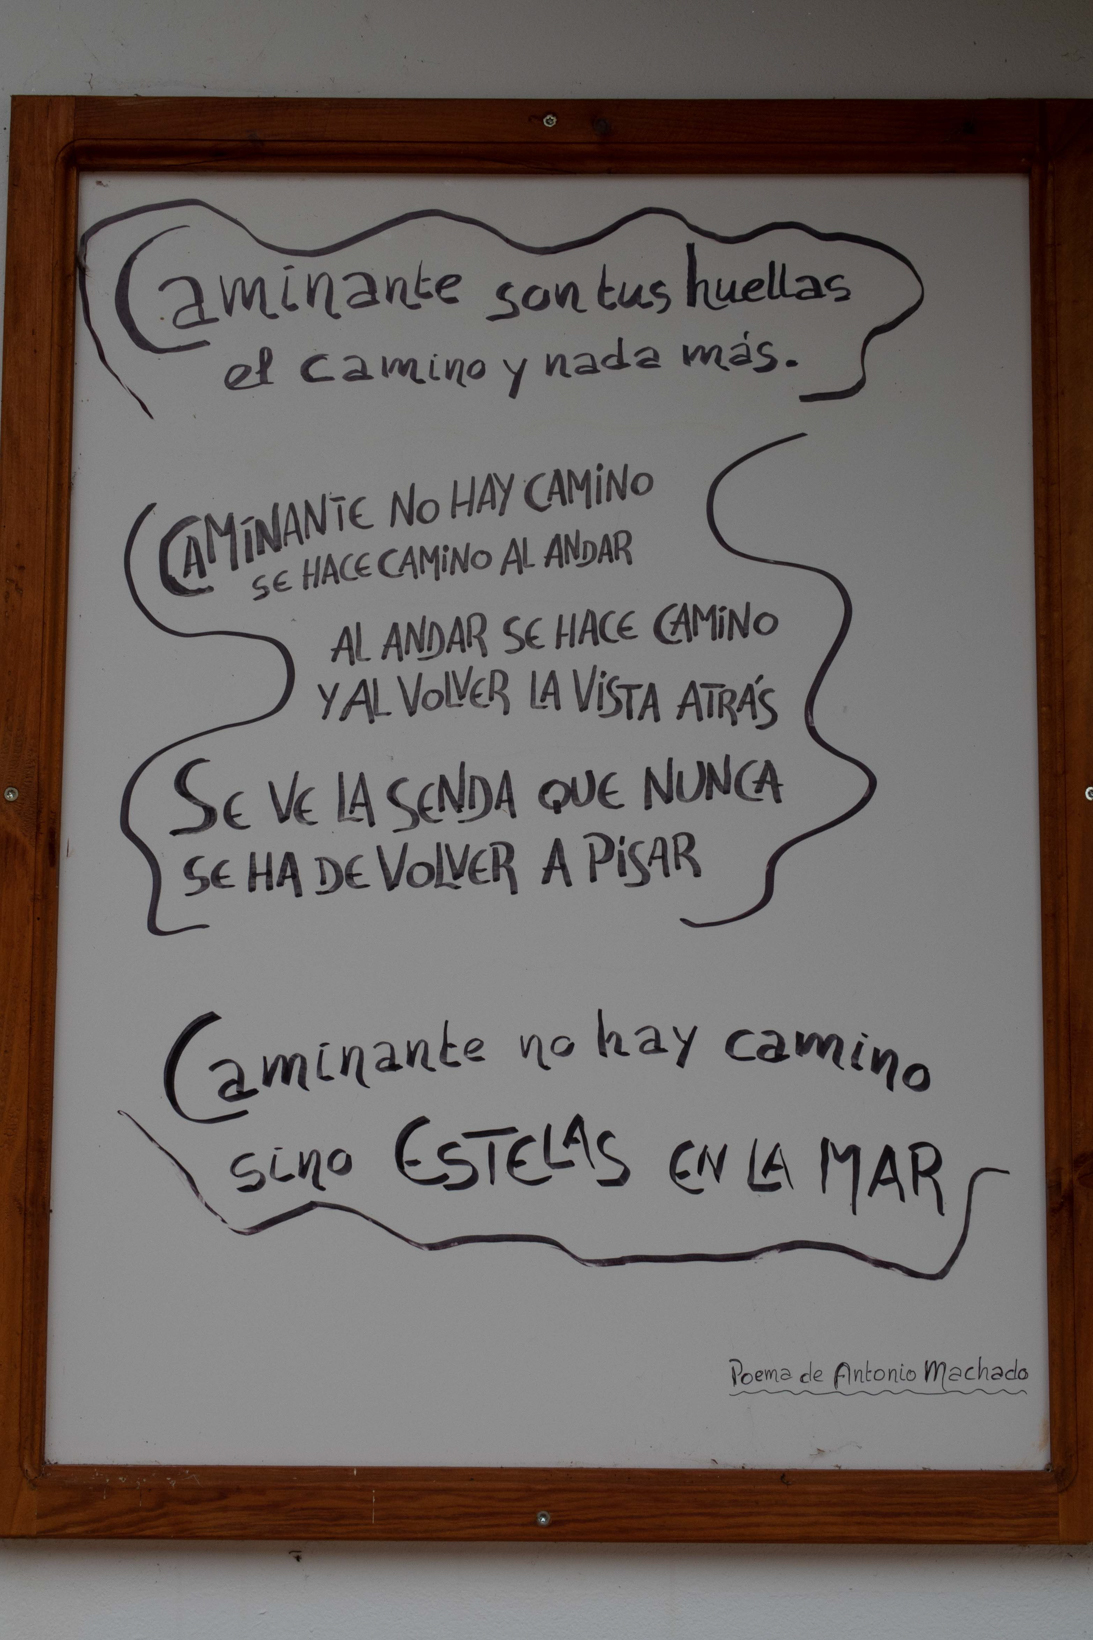 Caminante son tus huellas
el camino y nada más.
CAMINANTE NO HAY CAMINO
SE HACE CAMINO AL ANDAR
AL ANDAR SE HACE CAMINO
Y AL VOLVER LA VISTA ATRÁS
SE VE LA SENDA QUE NUNCA
SE HA DE VOLVER A PISAR
Caminante no hay camino
sino ESTELAS EN LA MAR
Poema de Antonio Machado